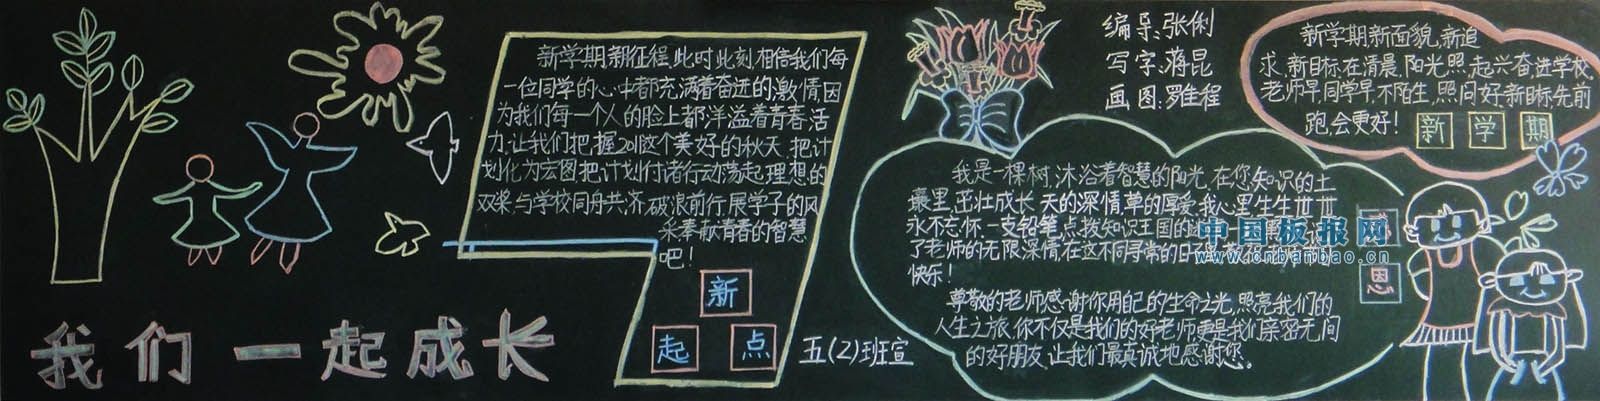 我们一起成长
新学期新征程,此时此刻,相信我们每
一位同学的心中都充满着奋进的激情因
为我们每一个人的脸上都洋溢着青春活
力,让我们把握201这个美好的秋天,把计
划化为宏图把计划付诸行动荡起理想的
双桨,与学校同舟共济,破浪前行,展学子的风
采奉献青春的智慧
吧!
新
起 点
五(2)班宣
编导:张俐
写字:蒋昆
画图:罗隹程
新学期,新面貌,新追
求,新目标,在清晨,阳光照,起兴奋,进学校,
老师早,同学早,不陌生,照问好,新目标,先前
跑,会更好!
新 学 期
我是一棵树,沐浴着智慧的阳光,在您知识的土
囊里,茁壮成长,天的深情,草的厚爱,我心里生生世世
永不忘怀,一支铅笔,点拨知识王国的
了老师的无限深情,在这不同寻常的日子
快乐!
尊敬的老师感谢你用自己的生命之光,照亮我们的
人生之旅,你不仅是我们的好老师更是我们亲密无间
的好朋友,让我们最真诚地感谢您。
恩
中国板报网
www.cnbanbao.cn